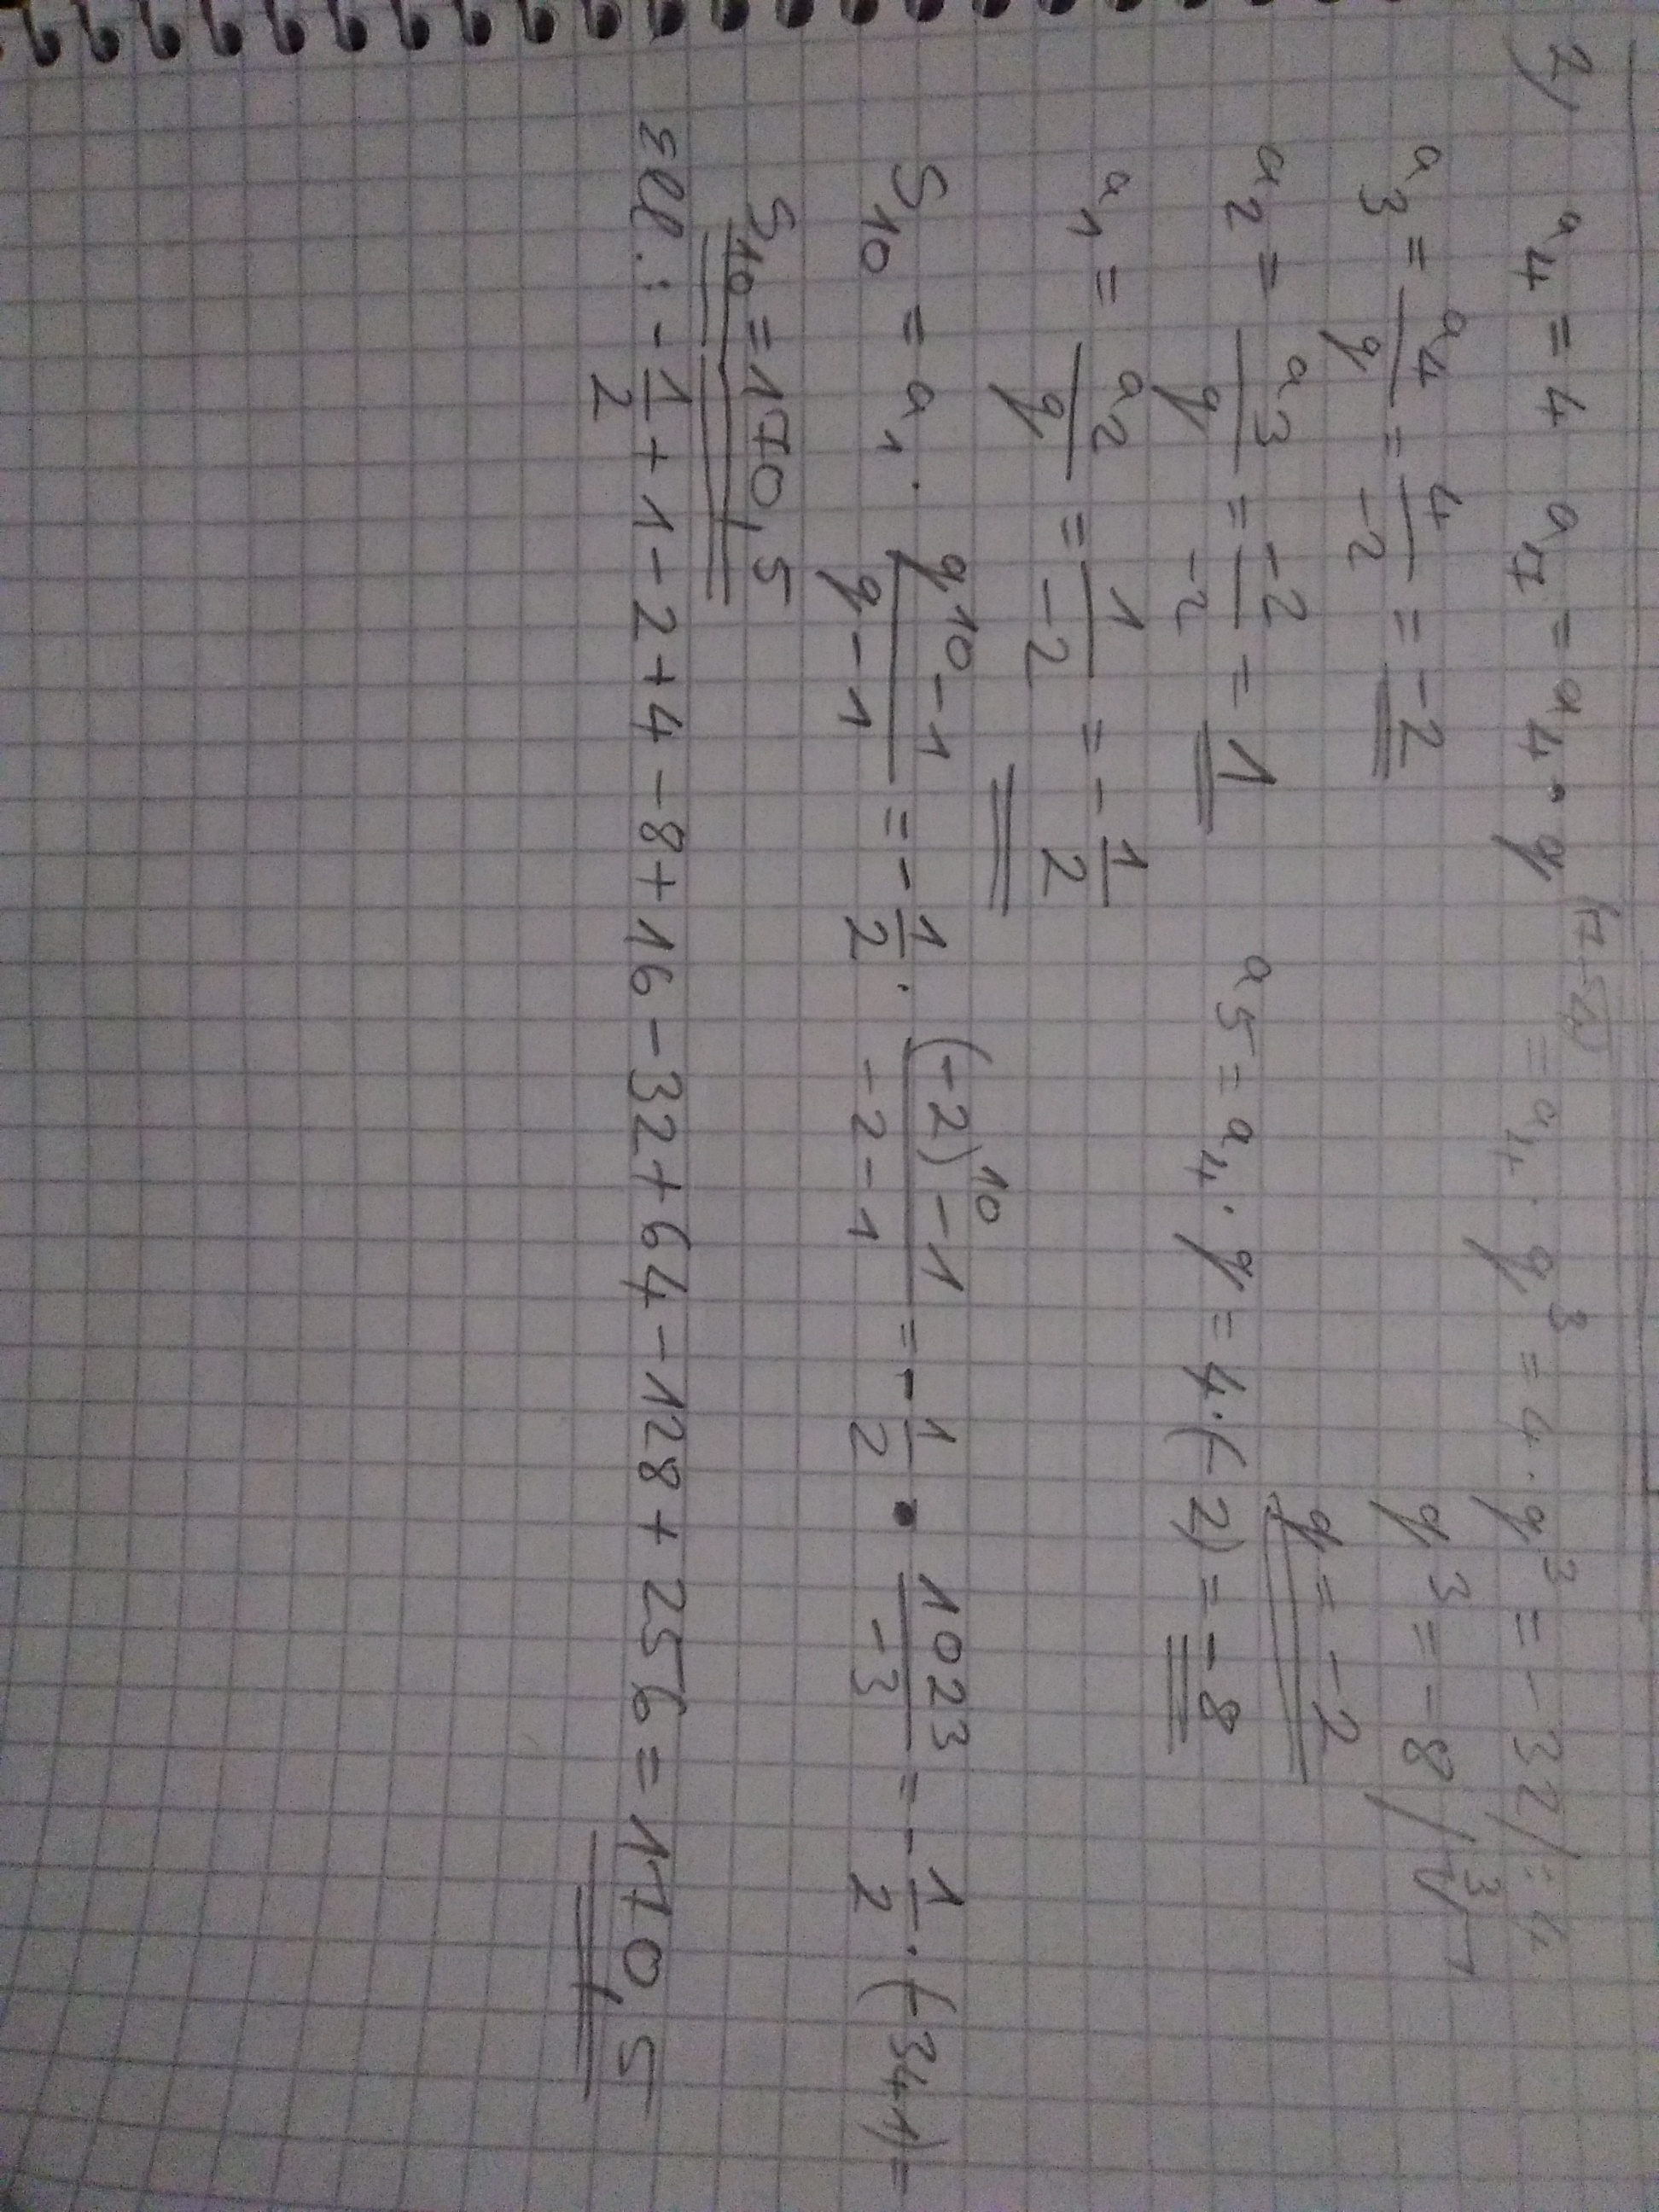 2) a₄ = 4 a₇ = a₄ · q⁽⁷⁻⁴⁾ = a₄ · q³ = 4 · q³ = -32 /:4
q³ = -8 / ∛
a₃ = a₄/q = 4/-2 = -2 q = -2
a₂ = a₃/q = -2/-2 = 1 a₅ = a₄ · q = 4 · (-2) = -8
a₁ = a₂/q = 1/-2 = -1/2
S₁₀ = a₁ · (q¹⁰ - 1)/(q - 1) = -1/2 · ((-2)¹⁰ - 1)/(-2 - 1) = -1/2 · 1023/-3 = -1/2 · (-341) =
S₁₀ = 170,5
: -1/2 + 1 - 2 + 4 - 8 + 16 - 32 + 64 - 128 + 256 = 170,5